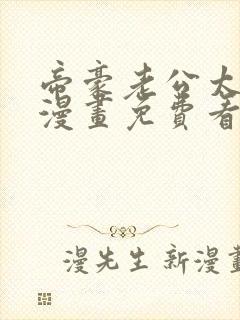 帝豪老公太
漫畫免費看
漫先生新漫畫